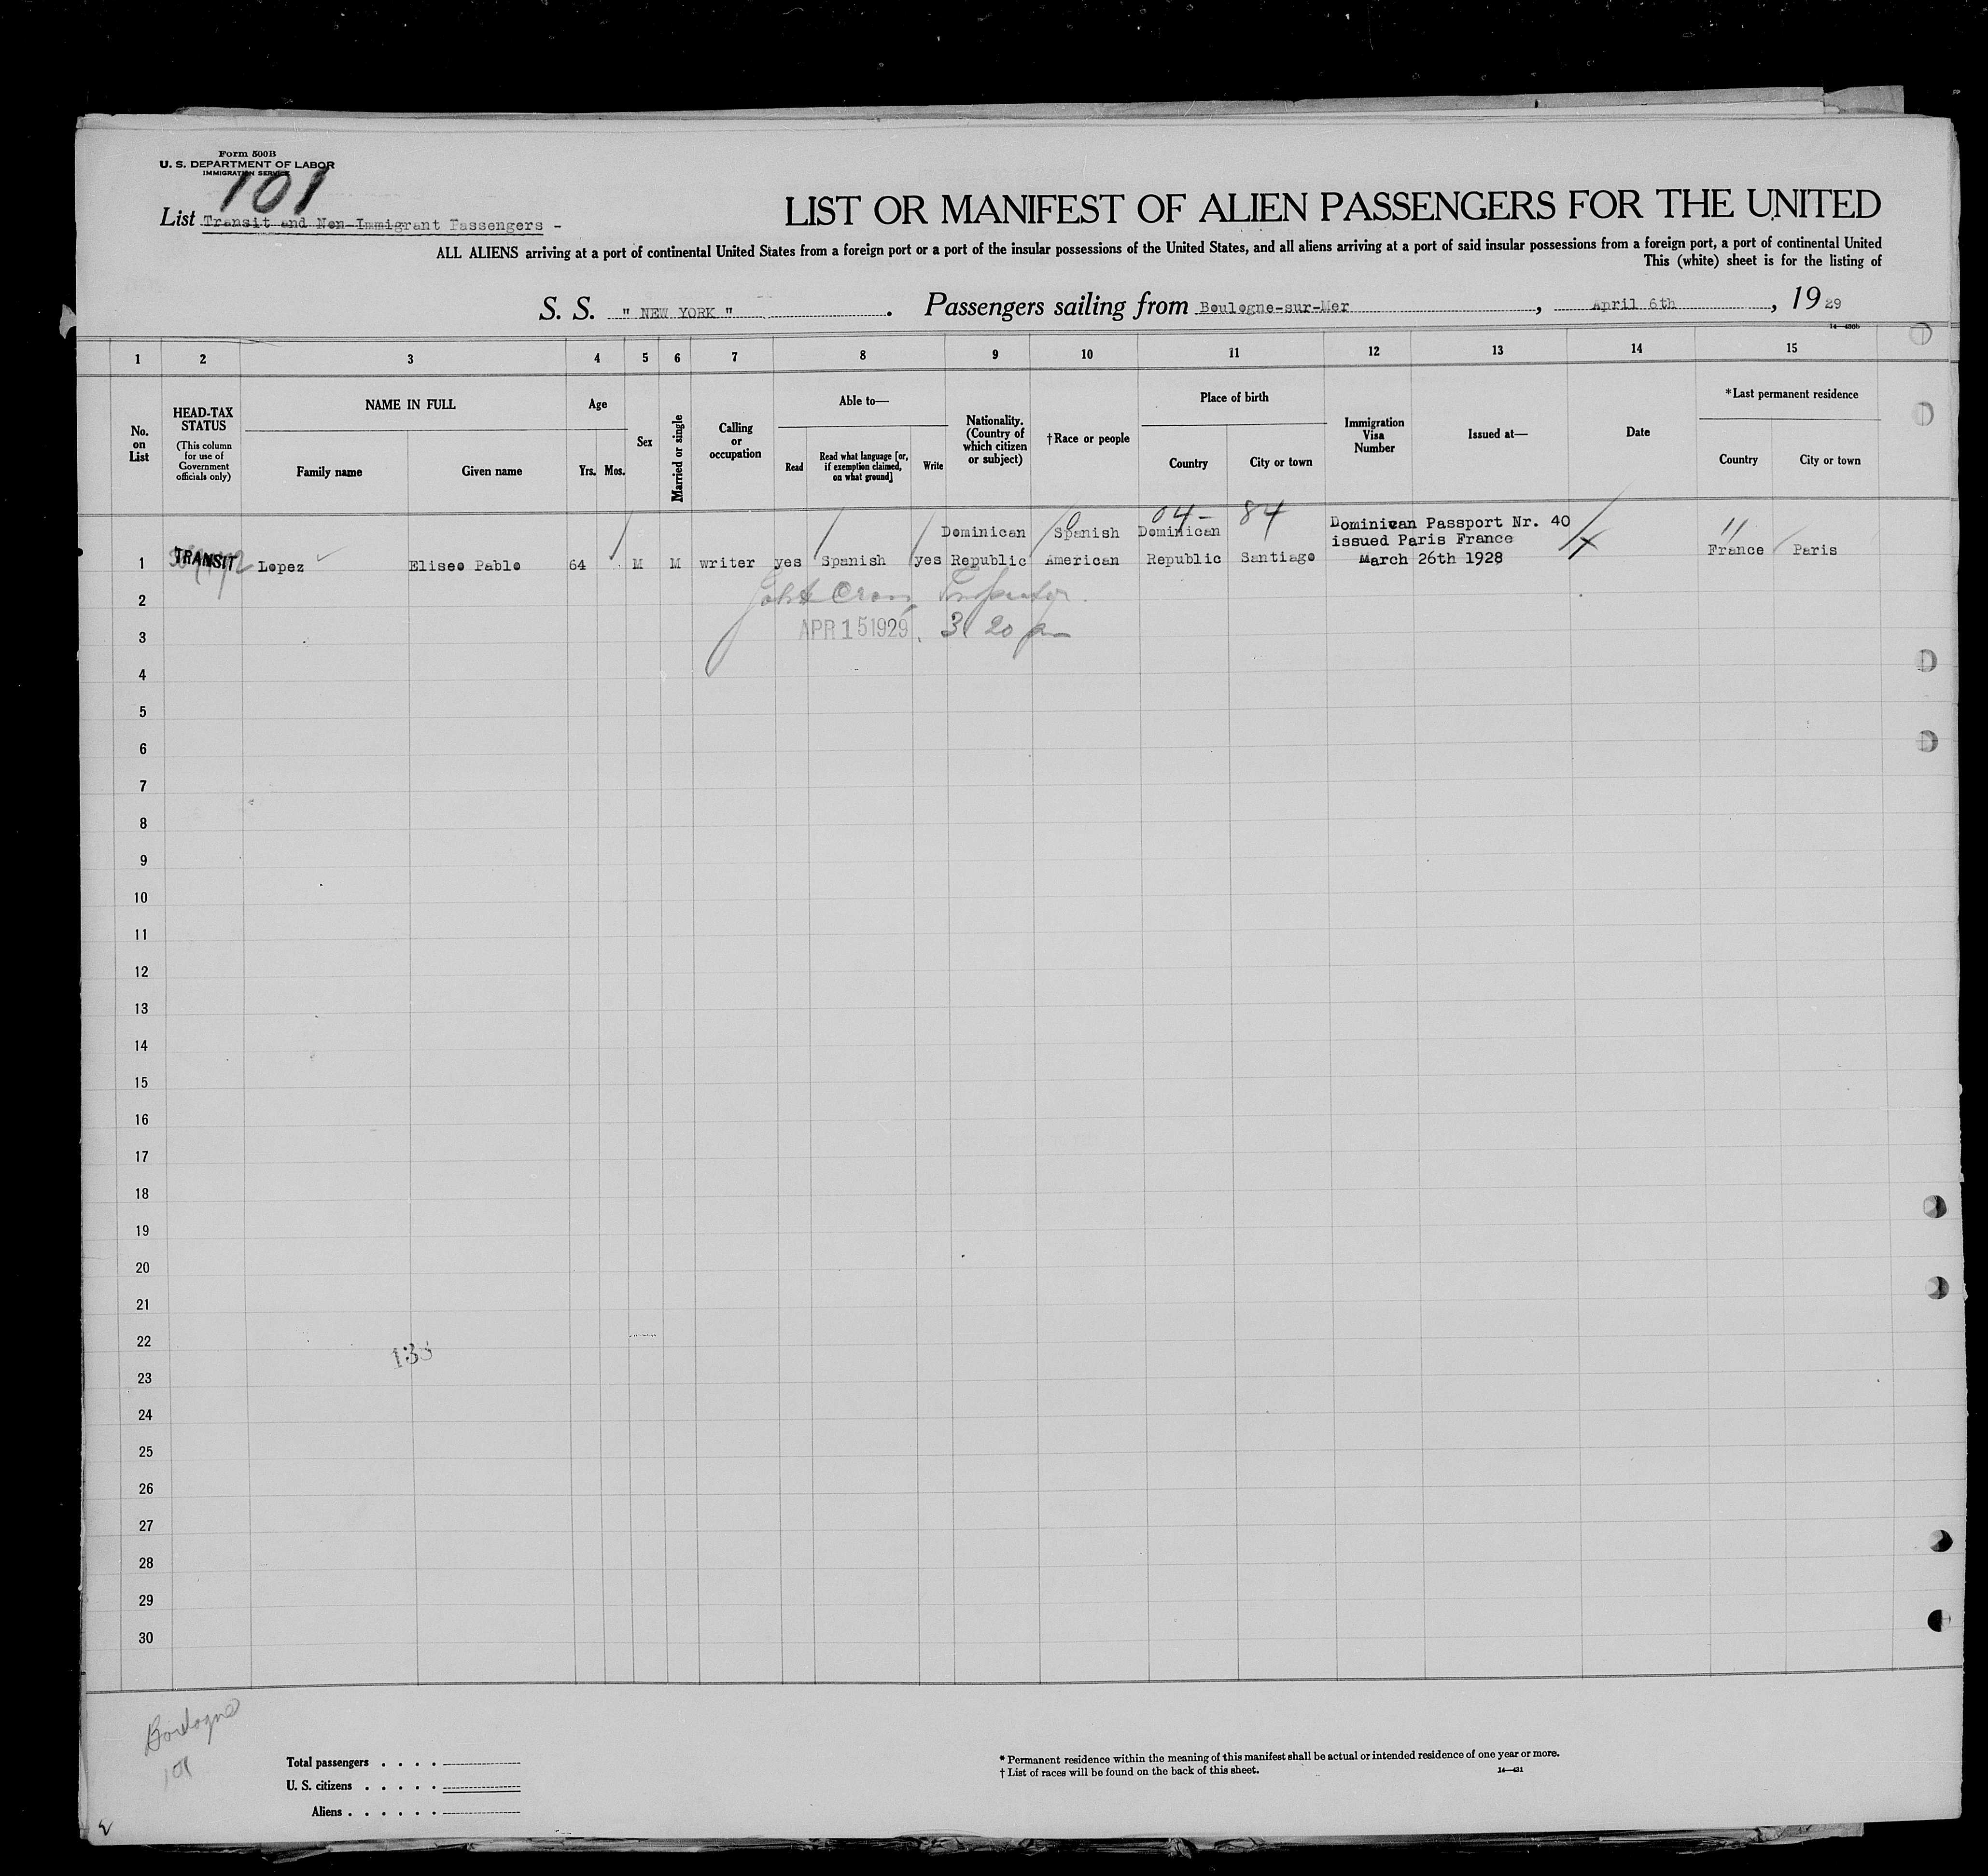 Form 500B
U. S. DEPARTMENT OF LABOR
IMMIGRATION SERVICE
101
List Transit and Non-Immigrant Passengers -
LIST OR MANIFEST OF ALIEN PASSENGERS FOR THE UNITED
ALL ALIENS arriving at a port of continental United States from a foreign port or a port of the insular possessions of the United States, and all aliens arriving at a port of said insular possessions from a foreign port, a port of continental United
This (white) sheet is for the listing of
S. S. " NEW YORK " . Passengers sailing from Boulogne-sur-Mer , April 6th , 19 29
14—430b
1 2 3 4 5 6 7 8 9 10 11 12 13 14 15
No. on List
HEAD-TAX STATUS
(This column for use of Government officials only)
NAME IN FULL
Family name
Given name
Age
Yrs. Mos.
Sex
Married or single
Calling or occupation
Able to—
Read
Read what language [or, if exemption claimed, on what ground]
Write
Nationality. (Country of which citizen or subject)
†Race or people
Place of birth
Country
City or town
Immigration Visa Number
Issued at—
Date
*Last permanent residence
Country
City or town
04- 84
1 TRANSIT Lopez Eliseo Pablo 64 M M writer yes Spanish yes Dominican Republic Spanish American Dominican Republic Santiago Dominican Passport Nr. 40 issued Paris France March 26th 1928 France Paris
2 Inspector
3 APR 15 1929 3 20 pm
4
5
6
7
8
9
10
11
12
13
14
15
16
17
18
19
20
21
22
23
24
25
26
27
28
29
30
Boulogne
101
Total passengers . . . .
U. S. citizens . . . . .
Aliens . . . . . .
* Permanent residence within the meaning of this manifest shall be actual or intended residence of one year or more.
† List of races will be found on the back of this sheet.
14—431